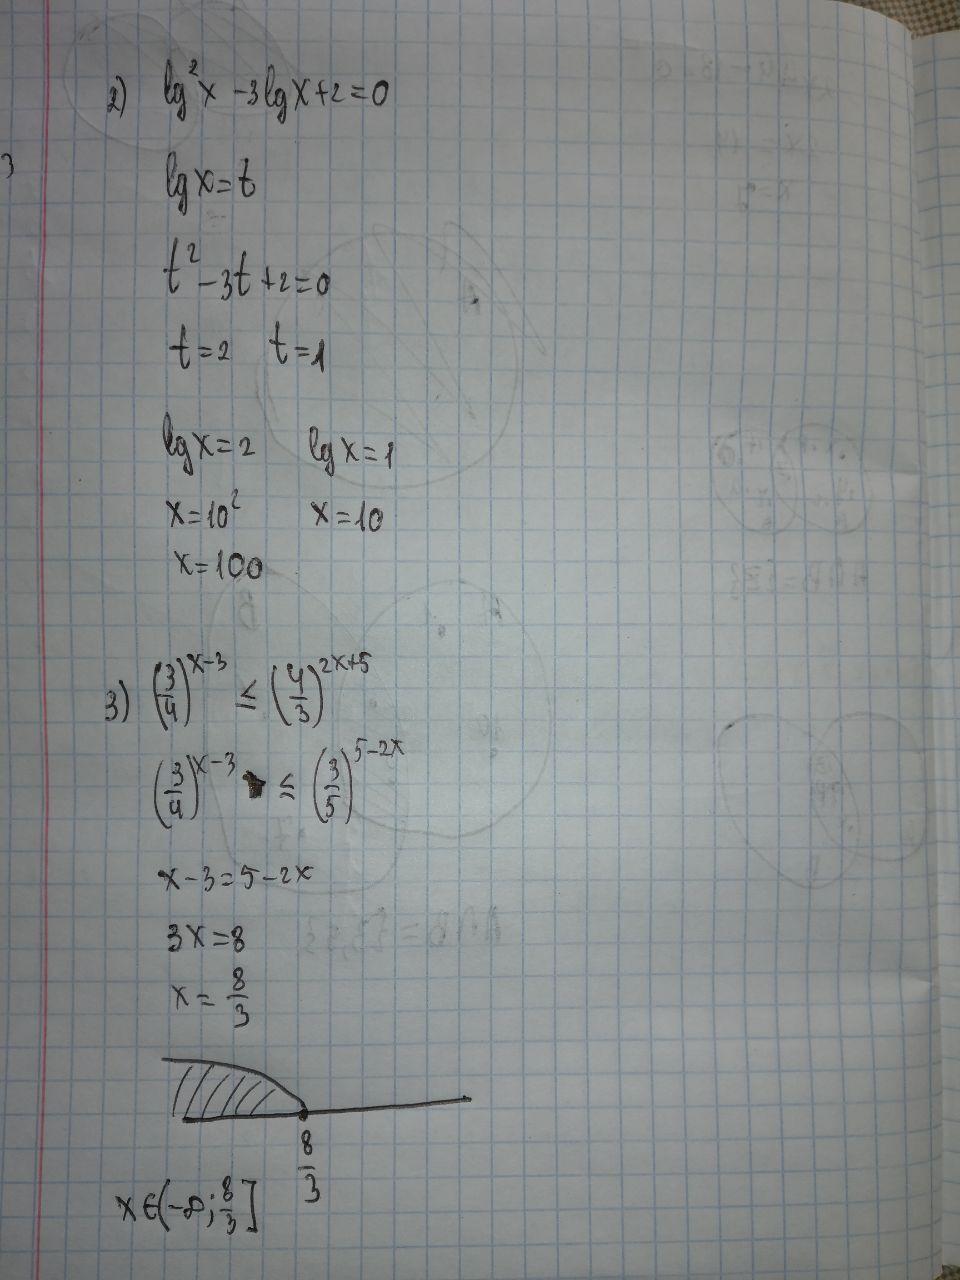 2) lg²x -3lgx+2=0
lgx=t
t²-3t+2=0
t=2 t=1
lgx=2 lgx=1
x=10² x=10
x=100
3) (3/4)^(x-3) ≤ (4/3)^(2x+5)
(3/4)^(x-3) ≤ (3/5)^(5-2x)
x-3=5-2x
3x=8
x=8/3
8/3
x∈(-∞;8/3]